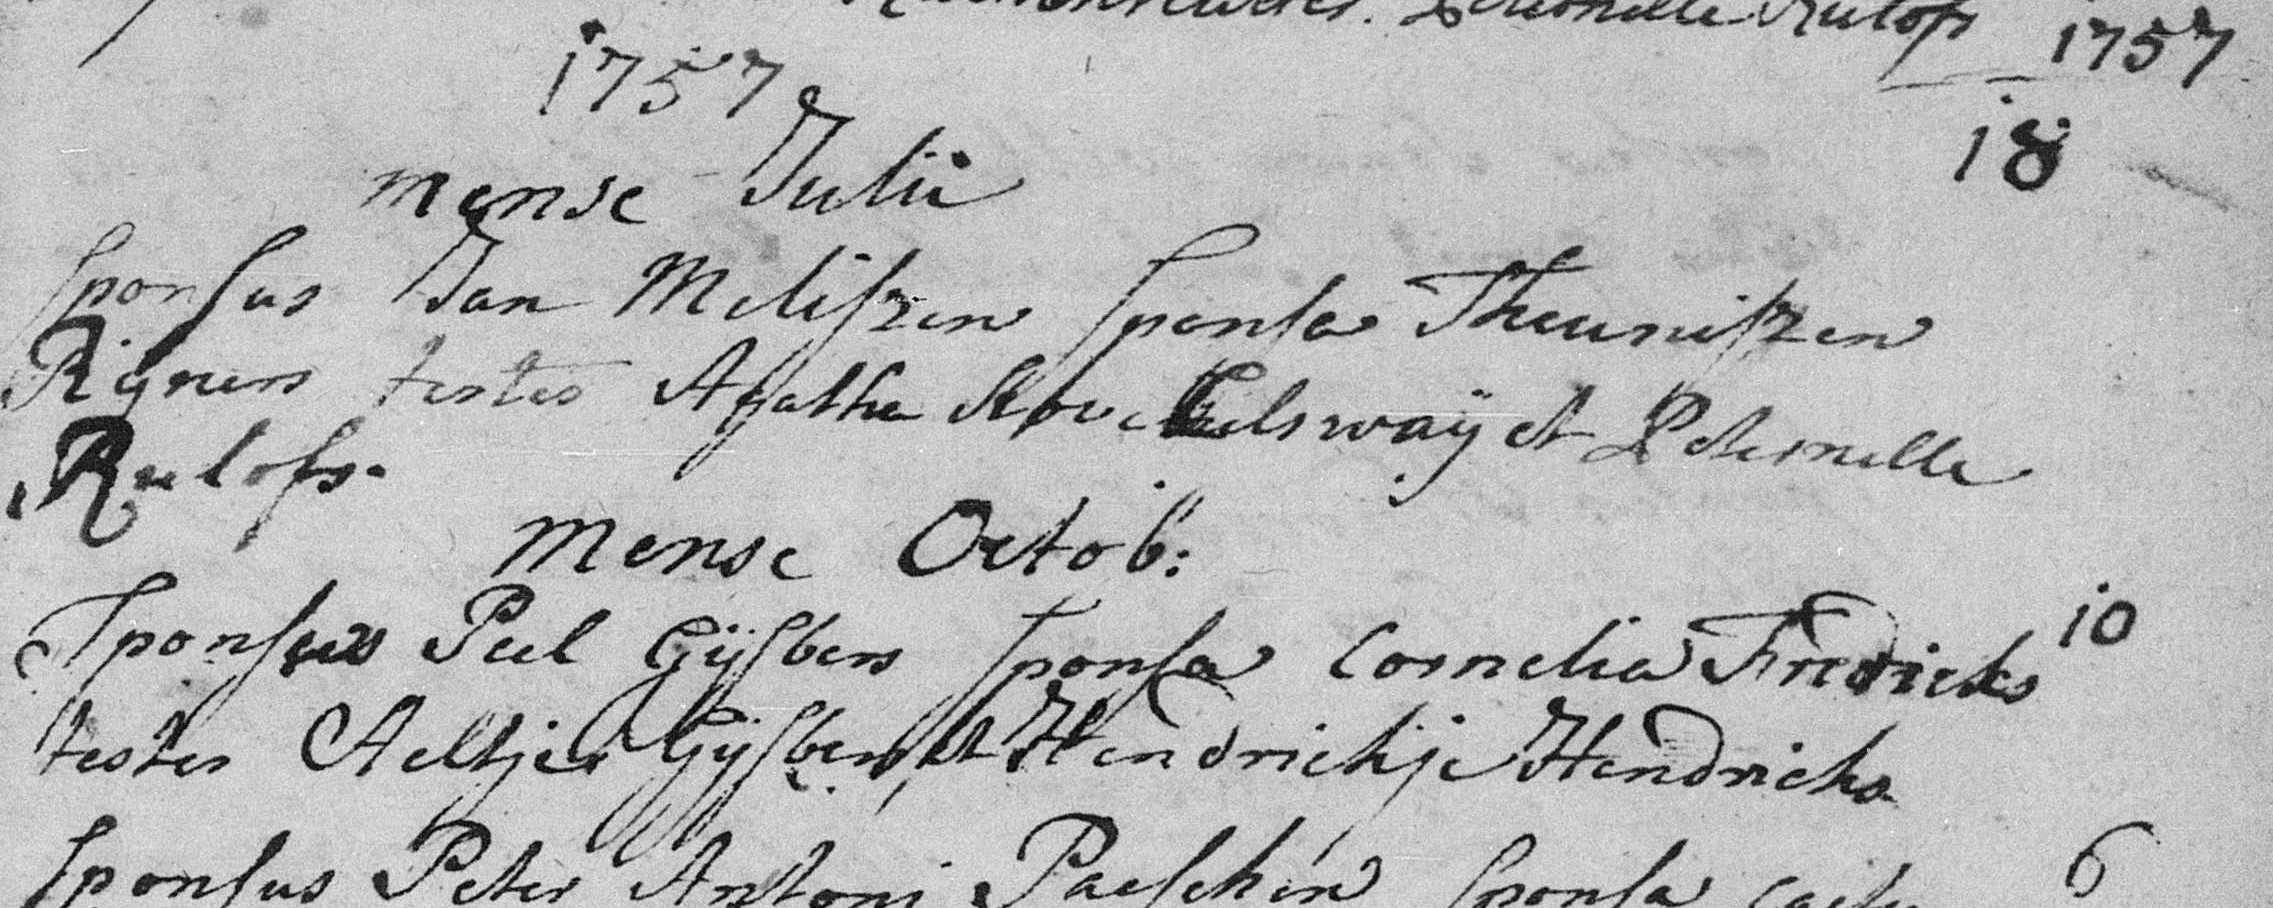 Peternelle Rulofs 1757
1757
18
mense Julii
Sponsus Jan Melissen Sponsa Theunissen
Rijners testes Agatha et Peternelle
Rulofs.
mense Octob:
Sponsus Peel Gijsbers Sponsa Cornelia Fredricks 10
testes Aeltjen Gijsbers et Hendrickje Hendricks
Sponsus Peter Antoni Paeschen Sponsa 6